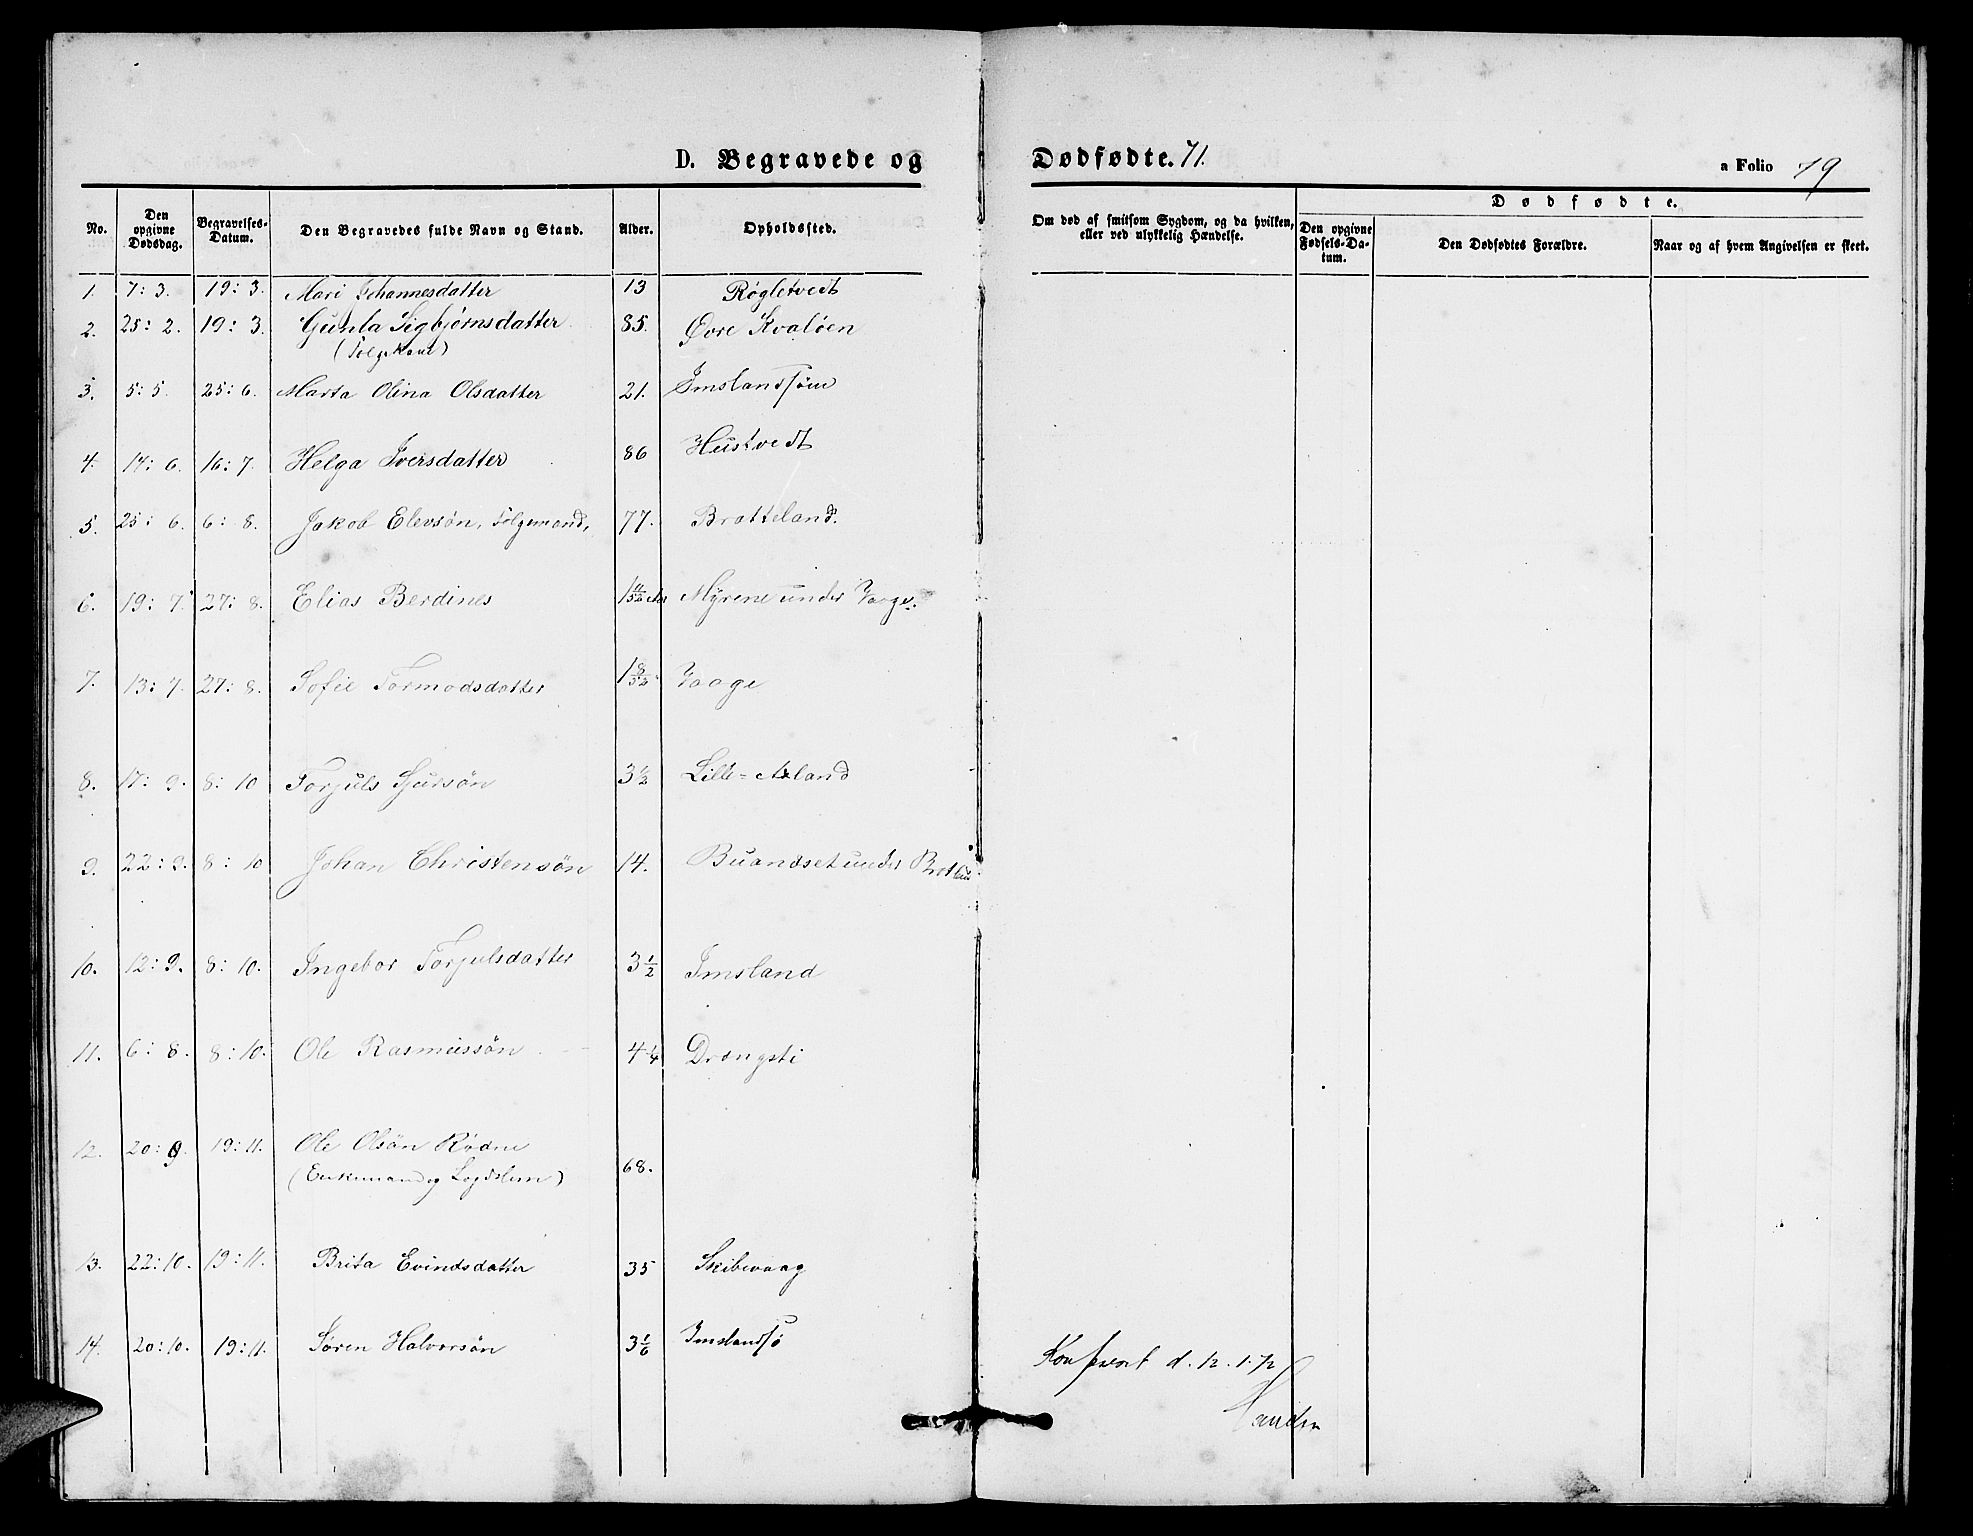 D. Begravede og Dødfødte. 71.
a Folio 79
No.
Den opgivne Dødsdag.
Begravelses-Datum.
Den Begravedes fulde Navn og Stand.
Alder.
Opholdssted.
Om død af smitsom Sygdom, og da hvilken, eller ved ulykkelig Hændelse.
Dødfødte.
Den opgivne Fødsels-Datum.
Den Dødfødtes Forældre.
Naar og af hvem Angivelsen er skeet.
1. 7: 3. 19: 3. Mari Johannesdatter 13 Røgletvedt
2. 25: 2. 19: 3. Gunla Sigbjørnsdatter 85. Øvre Kvaløen
(Følgekone)
3. 5: 5. 25: 6. Marta Olina Olsdatter 21. Imslandsjøen
4. 14: 6. 16: 7. Helga Iversdatter 86 Hustvedt
5. 25: 6. 6: 8. Jakob Elevsøn, Følgemand, 77. Bratteland.
6. 19: 7. 27: 8. Elias Berdines Myrene under Vaage.
7. 13: 7. 27: 8. Sofie Tormodsdatter 1 8/52 Vaage
8. 17: 9. 8: 10 Torjuls Sjursøn 3 1/2 Lille-Aland
9. 22: 9. 8: 10 Johan Christensøn 14. Buandset under
10. 12: 9. 8: 10. Ingebor Torjulsdatter 3 1/2 Imsland
11. 6: 8. 8: 10. Ole Rasmussøn 4 1/4 Drangsti
12. 20: 9. 19: 11. Ole Olsøn Rødne
(Enkemand og Lægdslem) 68.
13. 22: 10. 19: 11. Brita Evindsdatter 35 Skibevaag
14. 20: 10. 19: 11. Søren Halvorsøn 3 1/6 Imslandsjø
Konfereret d. 12. 1. 72